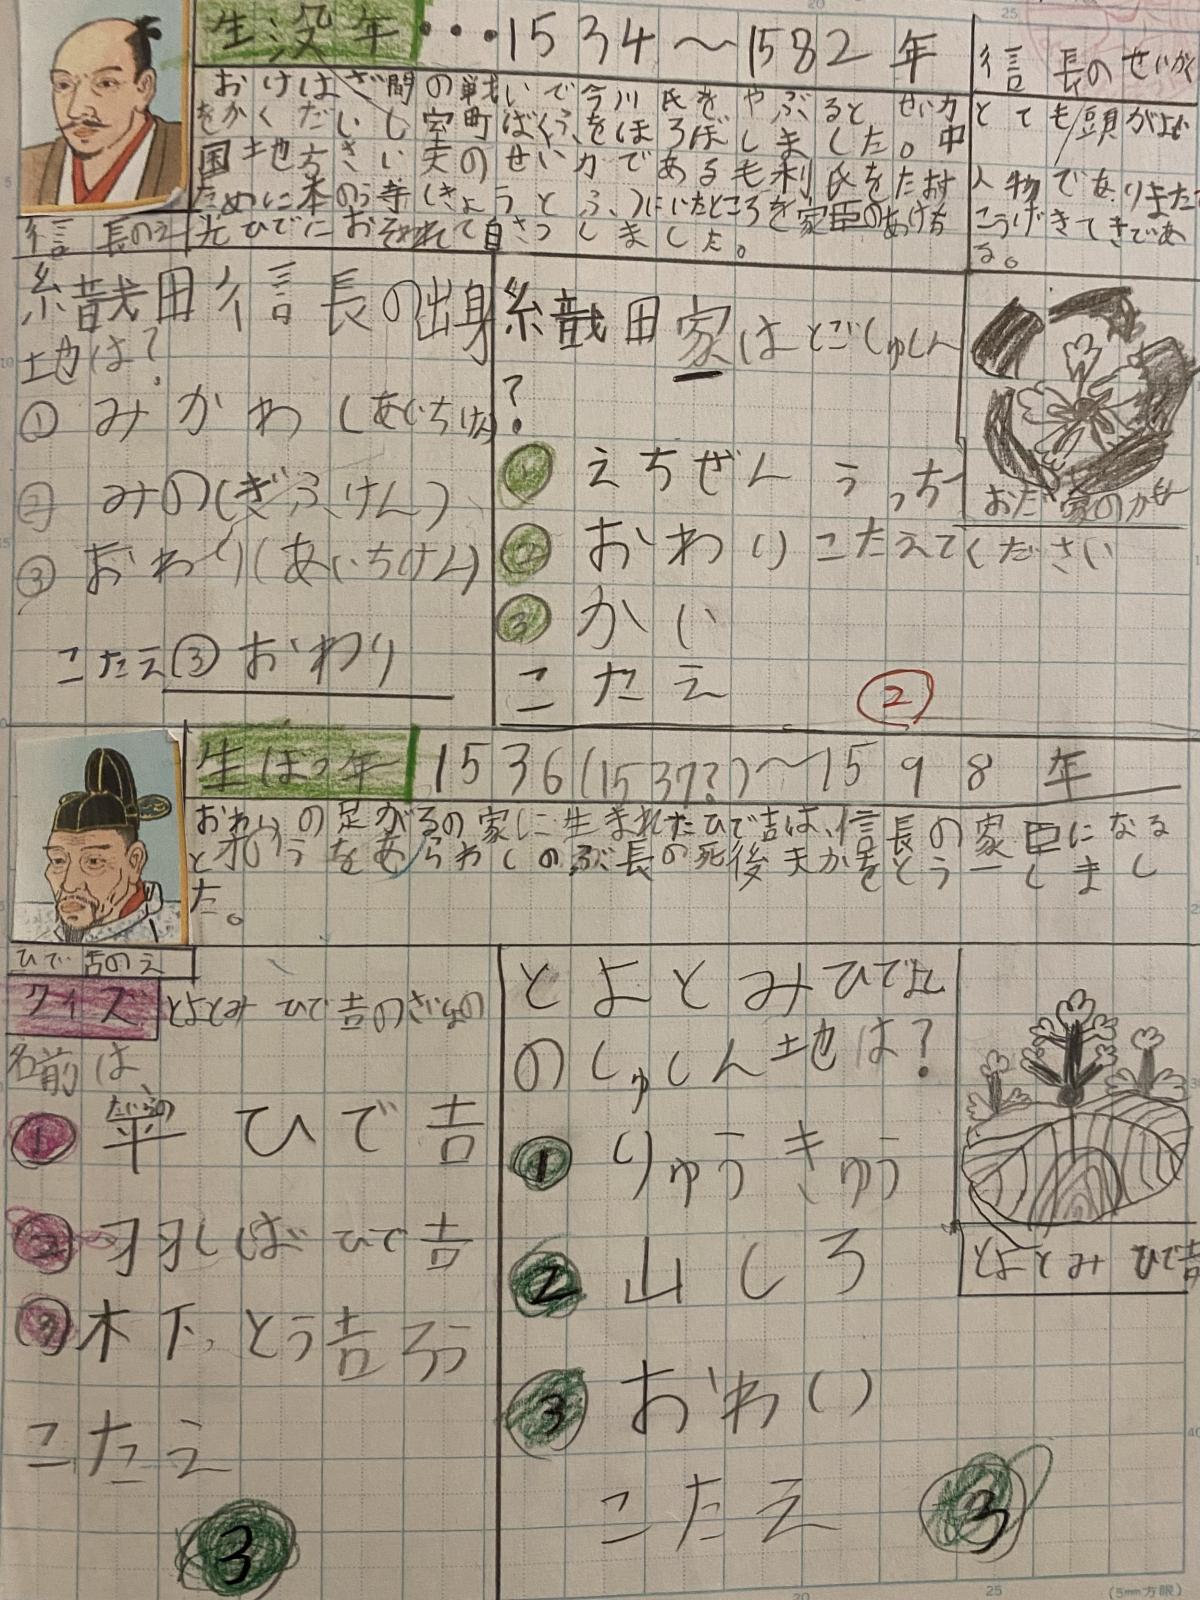 生没年・・・1534〜1582年
おけはざ間の戦いで今川氏をやぶるとせい力
をかくだいし室町ばくふをほろぼしました。中
国地方さい大のせい力である毛利氏をたおす
ために本のう寺(きょうとふ)にいたところを家臣のあけち
光ひでにおそわれて自さつしました。
信長のえ
信長のせいかく
とても頭がよい
人物でありました
こうげきてきであ
る。
織田信長の出身
地は?
① みかわ(あいちけん)
② みの(ぎふけん)
③ おわり(あいちけん)
こたえ③おわり
織田家はどごしゅしん
?
① えちぜん うっちー
② おわり こたえてください
③ かい
こたえ ②
おだ家のかもん
生ぼつ年 1536(1537?)〜1598年
おわりの足がるの家に生まれたひで吉は、信長の家臣になる
と礼うをあらわしのぶ長の死後天かをとう一しまし
た。
ひで吉のえ
クイズ とよとみひで吉のさいしょの
名前は、
① 平ひで吉
たいらの
② 羽しばひで吉
③ 木下とう吉ろう
こたえ
3
とよとみひでよし
のしゅしん地は?
1 りゅうきゅう
2 山しろ
3 おわり
こたえ 3
とよとみひで吉
20
25
(5mm方眼)